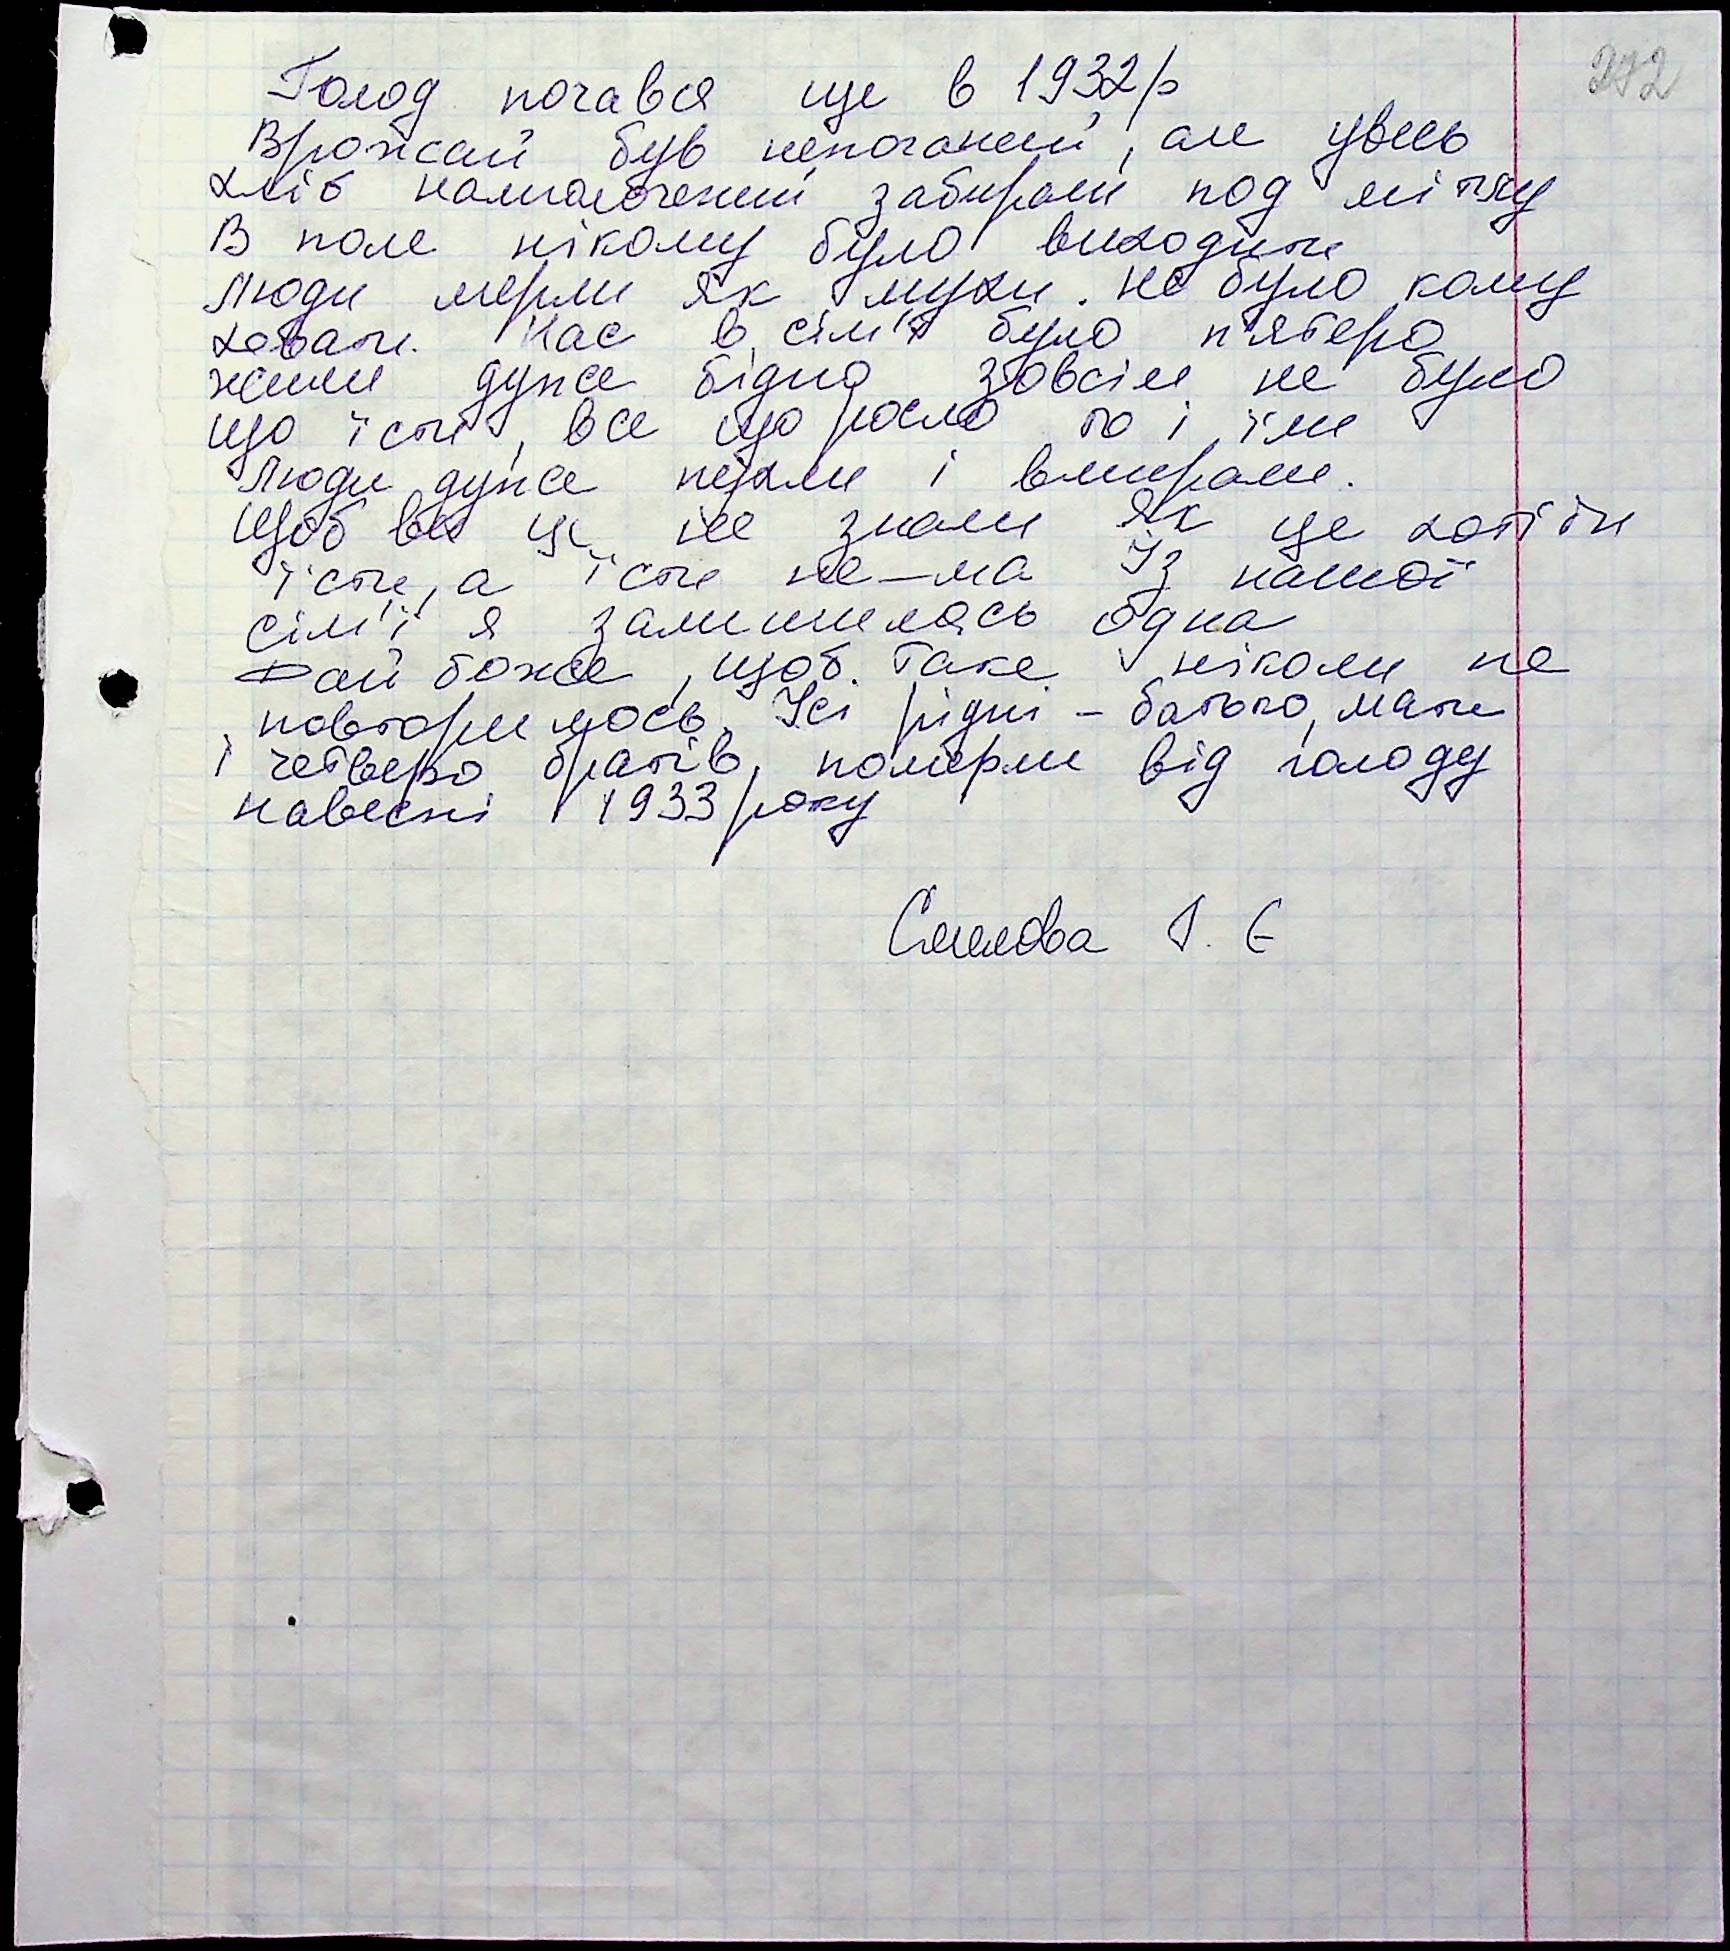 272
Голод почався ще в 1932 р
Врожай був непоганий, але увесь
хліб намолочений забирали под мітлу
В поле нікому було виходити
Люди мерли як мухи. не було кому
ховати. Нас в сім'ї було п'ятеро
жили дуже бідно зовсім не було
що їсти, все що росло то і їли
Люди дуже пухли і вмирали.
Щоб ви це не знали як це хотіти
їсти, а їсти не-ма Із нашої
сім'ї я залишилась одна
Дай боже, щоб таке ніколи не
повторилось. Усі рідні - батько, мати
і четверо братів, померли від голоду
навесні 1933 року
Г. Є